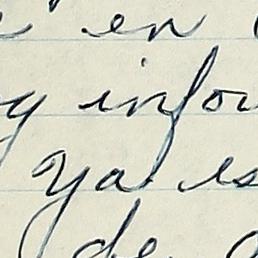 en
y infor
Ya es
de